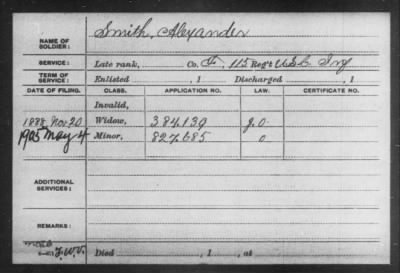 NAME OF SOLDIER: Smith, Alexander
SERVICE: Late rank, Co. F, 115 Reg't U.S.C. Inf
TERM OF SERVICE: Enlisted , 1 Discharged , 1
DATE OF FILING. CLASS. APPLICATION NO. LAW. CERTIFICATE NO.
Invalid,
1888 Nov 20 Widow, 384139 G.O.
1905 May 4 Minor, 827685 O
ADDITIONAL SERVICES:
REMARKS:
J.W.V. Died , 1 , at